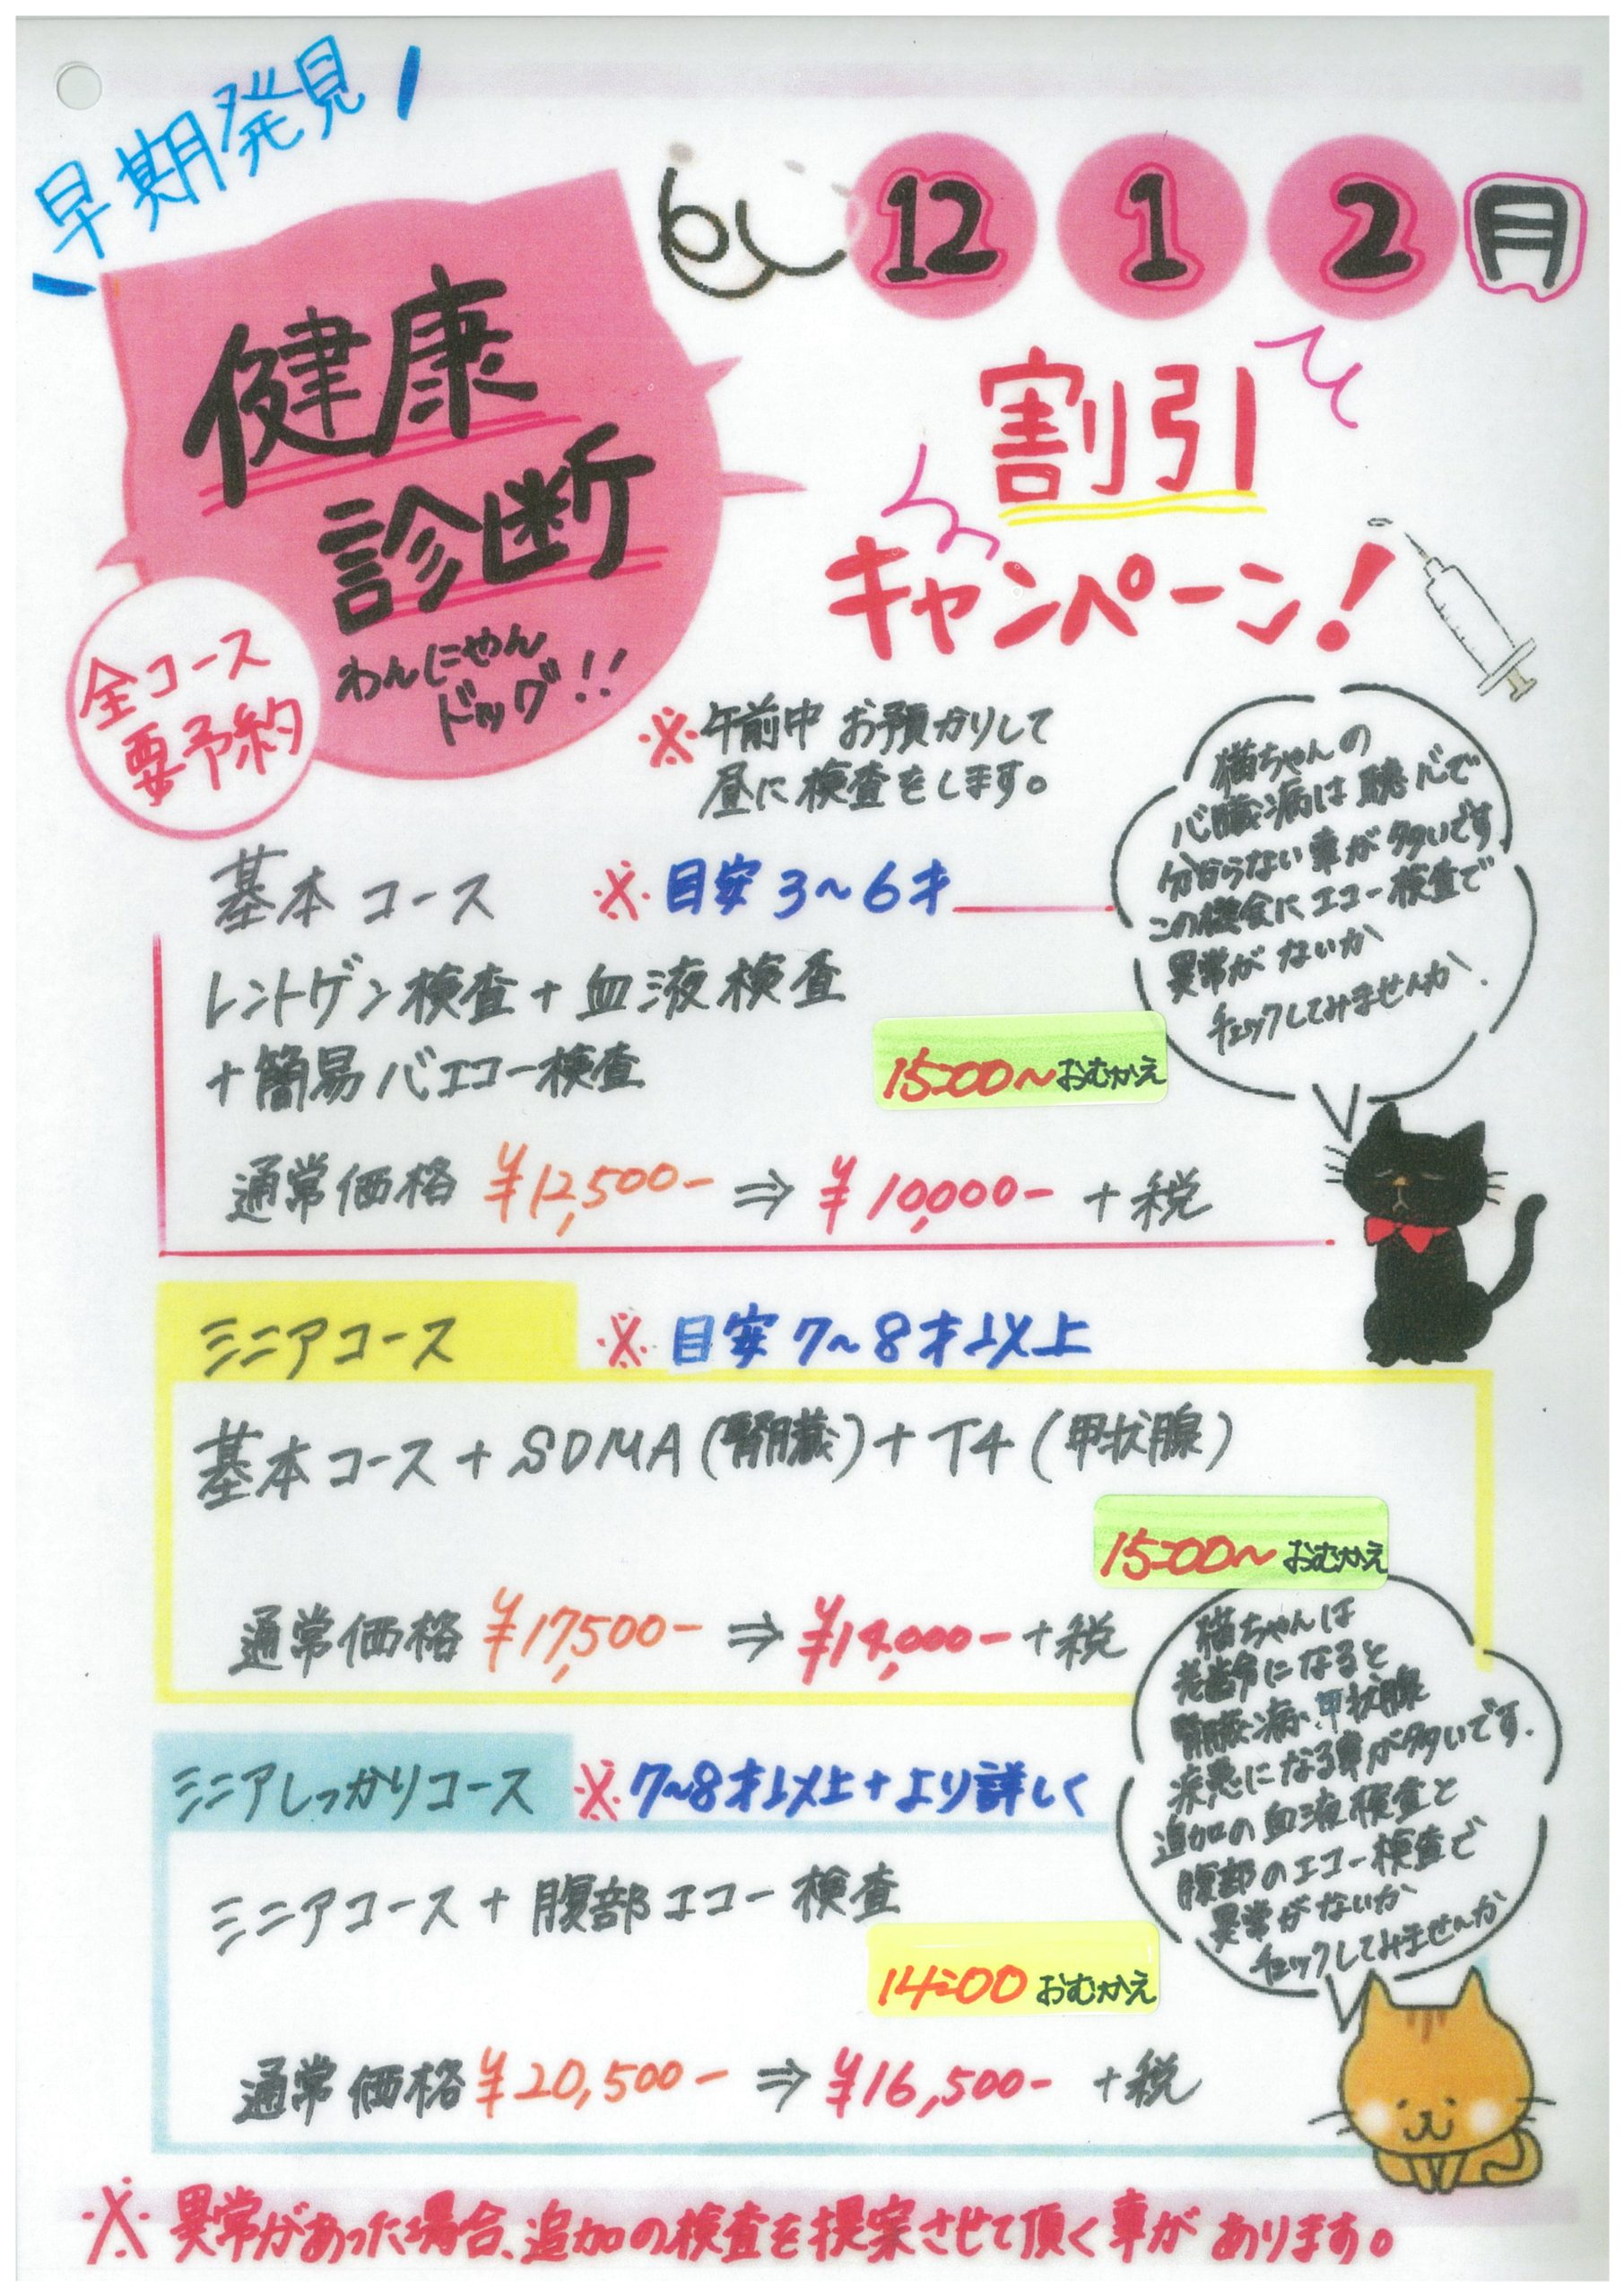 早期発見
健康
診断
わんにゃん
ドッグ!!
全コース
要予約
12 1 2 月
割引
キャンペーン!
※午前中 お預かりして
昼に検査をします。
猫ちゃんの
心臓病は聴心で
分からない事が多いです
この機会にエコー検査で
異常がないか
チェックしてみませんか.
基本コース ※目安 3~6才
レントゲン検査+血液検査
+簡易心エコー検査
15:00~おむかえ
通常価格 ¥12,500- ⇒ ¥10,000- +税
ミニアコース ※目安 7~8才以上
基本コース+SDMA(腎臓)+T4(甲状腺)
15:00~おむかえ
通常価格 ¥17,500- ⇒ ¥14,000- +税
猫ちゃんは
老齢になると
腎臓病、甲状腺
疾患になる事が多いです.
追加の血液検査と
腹部のエコー検査で
異常がないか
チェックしてみませんか
ミニアしっかりコース ※7~8才以上+より詳しく
ミニアコース+腹部エコー検査
14:00 おむかえ
通常価格 ¥20,500- ⇒ ¥16,500- +税
※異常があった場合、追加の検査を提案させて頂く事があります。